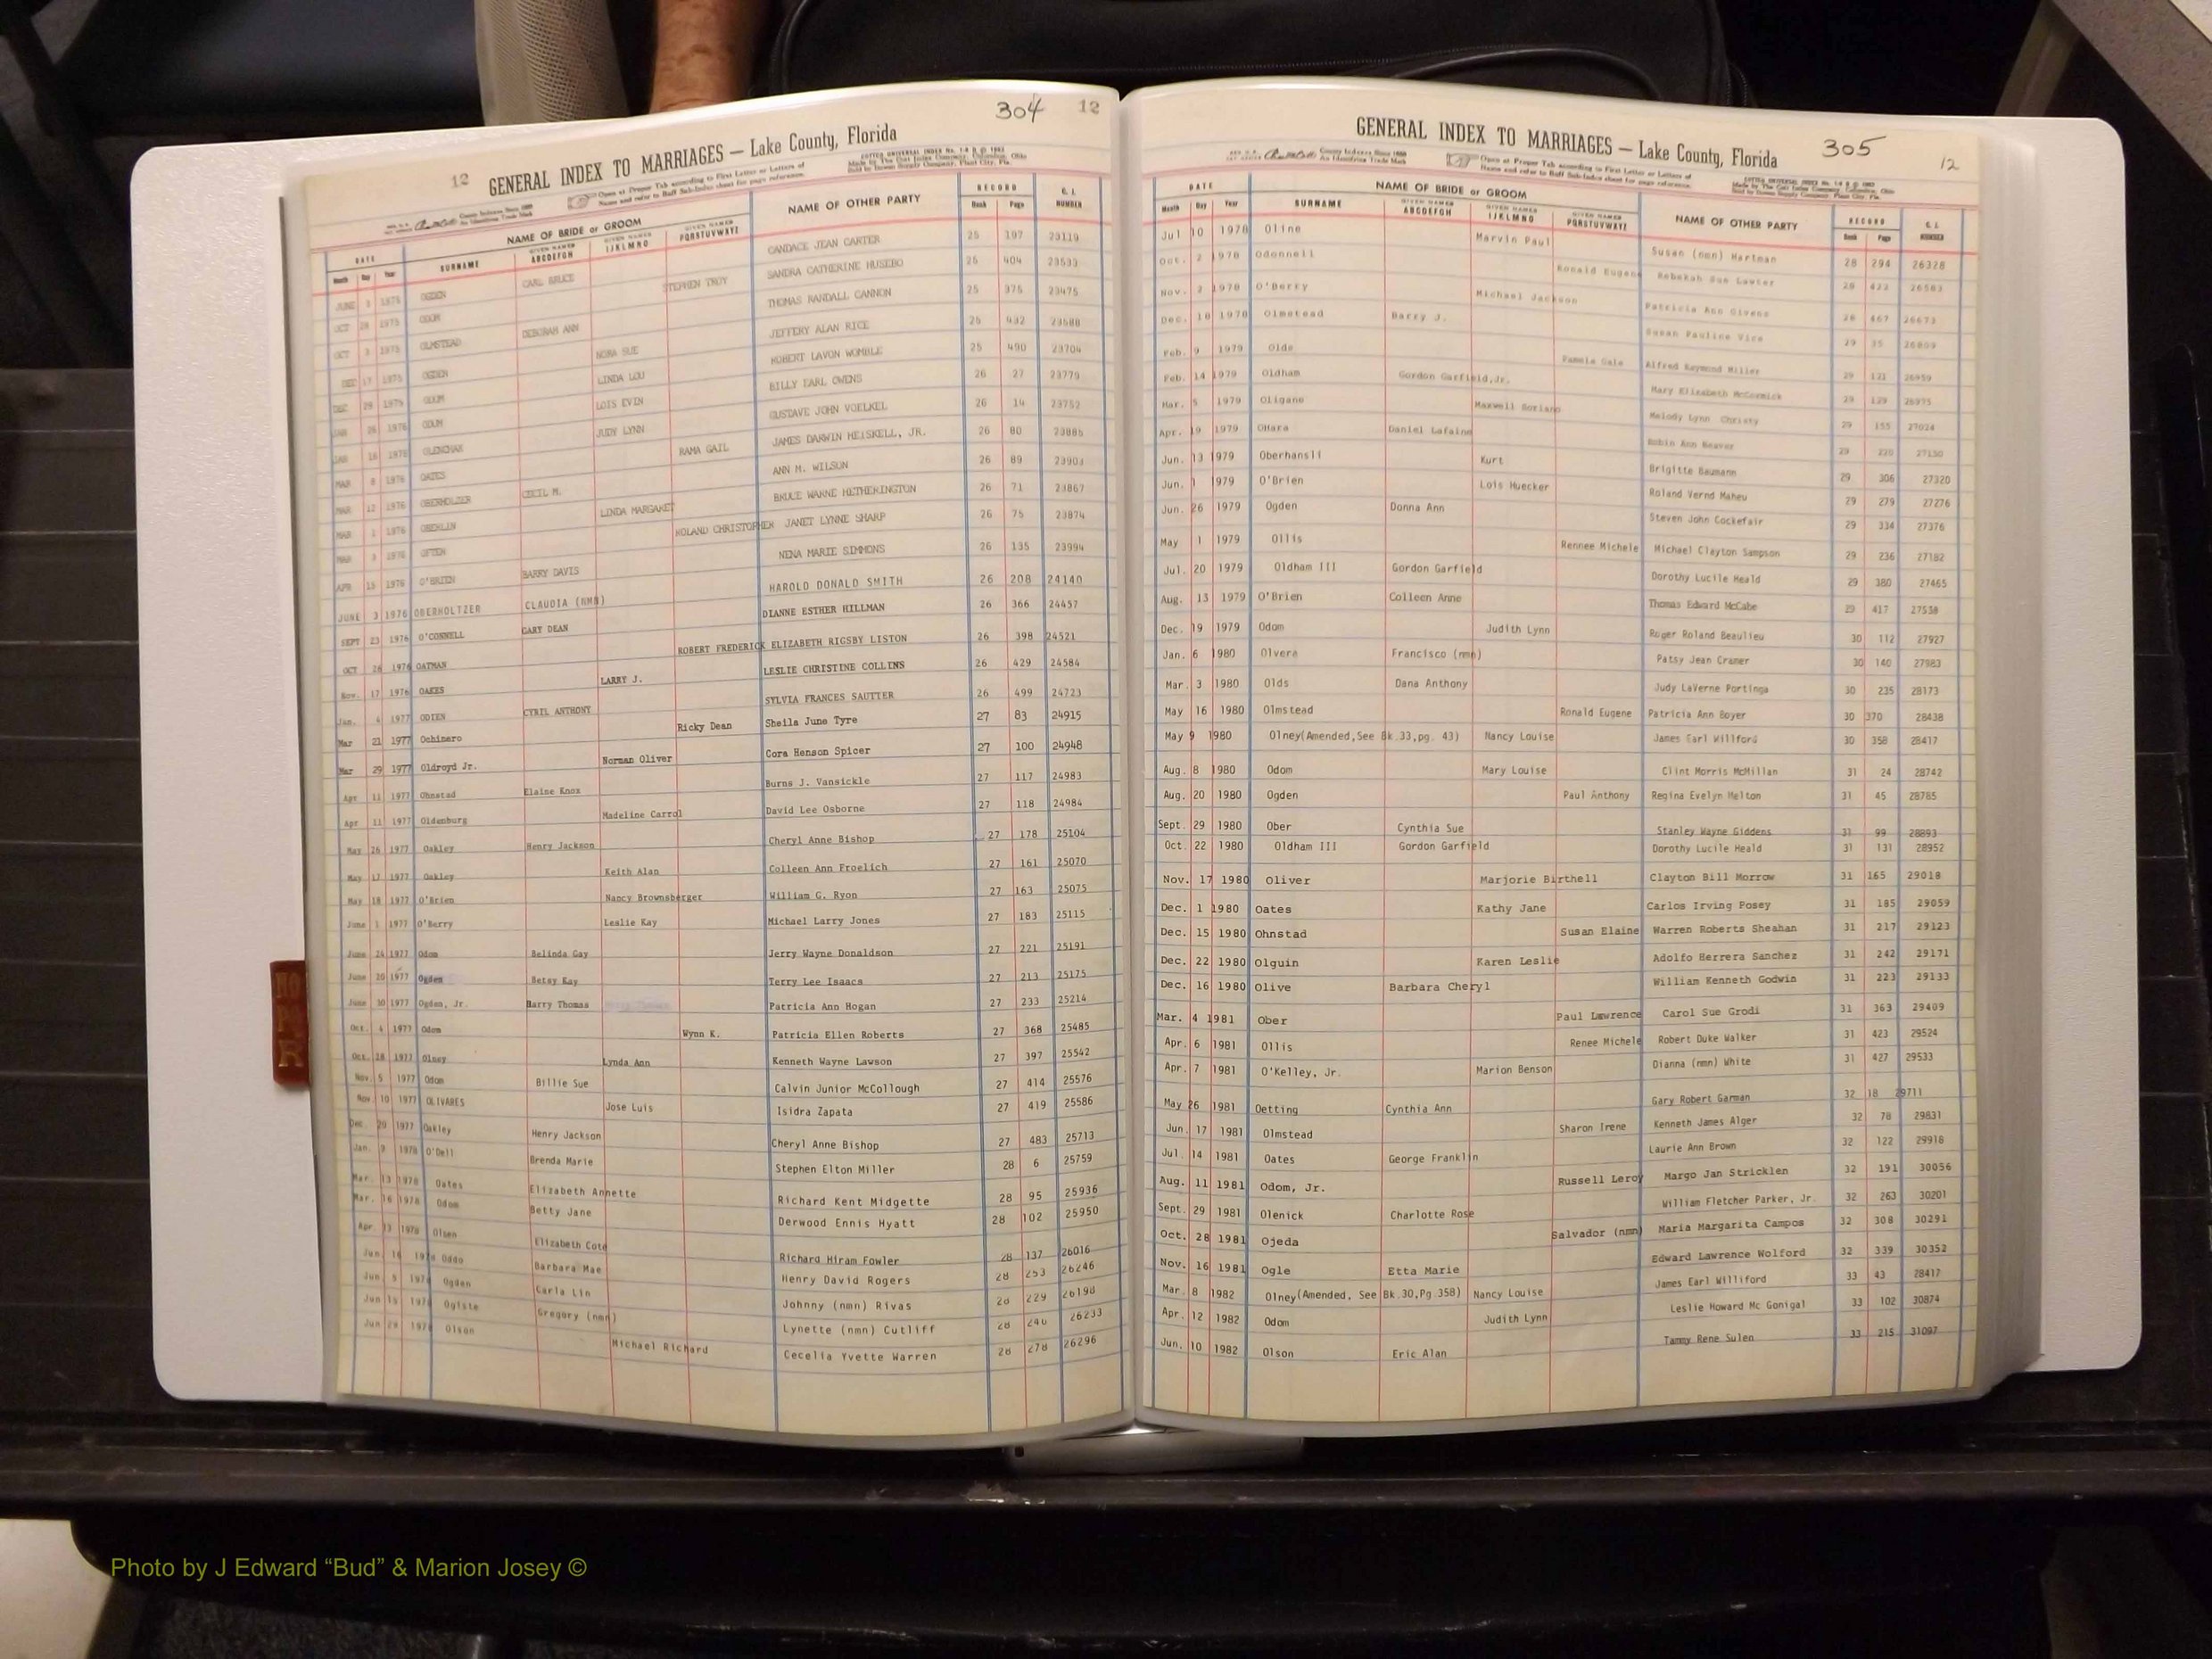 304 12
12 GENERAL INDEX TO MARRIAGES — Lake County, Florida
DATE NAME OF BRIDE or GROOM NAME OF OTHER PARTY RECORD C. I. NUMBER
Month Day Year SURNAME GIVEN NAMES ABCDEFGH GIVEN NAMES IJKLMNO GIVEN NAMES PQRSTUVWXYZ Book Page
JUNE 1975 OGDEN CARL BRUCE CANDACE JEAN CARTER 25 197 23119
OCT 1975 ODUM STEPHEN TROY SANDRA CATHERINE HUSEBO 25 404 23533
OCT 3 1975 OLMSTEAD DEBORAH ANN THOMAS RANDALL CANNON 25 375 23475
DEC 17 1975 OGDEN NORA SUE JEFFERY ALAN RICE 25 432 23588
DEC 1975 ODUM LINDA LOU ROBERT LAVON WOMBLE 25 490 23704
JAN 26 1976 ODUM LOIS EVIN BILLY EARL OWENS 26 27 23779
JAN 16 1976 JUDY LYNN GUSTAVE JOHN VOELKEL 26 14 23752
MAR 8 1976 OATES RAMA GAIL JAMES DARWIN HEISKELL, JR. 26 80 23885
MAR 12 1976 OBERHOLZER CECIL M. ANN M. WILSON 26 89 23903
MAR 1 1976 OBERLIN LINDA MARGARET BRUCE WARNE HETHERINGTON 26 71 23867
MAR 3 1976 OFTEN ROLAND CHRISTOPHER JANET LYNNE SHARP 26 75 23874
APR 15 1976 O'BRIEN BARRY DAVIS NENA MARIE SIMMONS 26 135 23994
JUNE 3 1976 OBERHOLTZER CLAUDIA (NMN) HAROLD DONALD SMITH 26 208 24140
SEPT 23 1976 O'CONNELL GARY DEAN DIANNE ESTHER HILLMAN 26 366 24457
OCT 26 1976 OATMAN ROBERT FREDERICK ELIZABETH RIGSBY LISTON 26 398 24521
Nov. 17 1976 OAKES LARRY J. LESLIE CHRISTINE COLLINS 26 429 24584
Jan. 4 1977 ODIEN CYRIL ANTHONY SYLVIA FRANCES SAUTTER 26 499 24723
Mar 21 1977 Ochinero Ricky Dean Sheila June Tyre 27 83 24915
Mar 29 1977 Oldroyd Jr. Norman Oliver Cora Henson Spicer 27 100 24948
Apr 11 1977 Ohnstad Elaine Knox Burns J. Vansickle 27 117 24983
Apr 11 1977 Oldenburg Madeline Carrol David Lee Osborne 27 118 24984
May 26 1977 Oakley Henry Jackson Cheryl Anne Bishop 27 178 25104
May 17 1977 Oakley Keith Alan Colleen Ann Froelich 27 161 25070
May 18 1977 O'Brien Nancy Brownsberger William G. Ryon 27 163 25075
June 1 1977 O'Berry Leslie Kay Michael Larry Jones 27 183 25115
June 24 1977 Odom Belinda Gay Jerry Wayne Donaldson 27 221 25191
June 20 1977 Ogden Betsy Kay Terry Lee Isaacs 27 213 25175
June 30 1977 Ogden, Jr. Harry Thomas Patricia Ann Hogan 27 233 25214
Oct. 4 1977 Odom Wynn K. Patricia Ellen Roberts 27 368 25485
Oct. 28 1977 Olney Lynda Ann Kenneth Wayne Lawson 27 397 25542
Nov. 5 1977 Odom Billie Sue Calvin Junior McCollough 27 414 25576
Nov. 10 1977 OLIVARES Jose Luis Isidra Zapata 27 419 25586
Dec. 20 1977 Oakley Henry Jackson Cheryl Anne Bishop 27 483 25713
Jan. 9 1978 O'Dell Brenda Marie Stephen Elton Miller 28 6 25759
Mar. 13 1978 Oates Elizabeth Annette Richard Kent Midgette 28 95 25936
Mar. 16 1978 Odom Betty Jane Derwood Ennis Hyatt 28 102 25950
Apr. 13 1978 Olsen Elizabeth Cote Richard Hiram Fowler 28 137 26016
Jun 16 1978 Oddo Barbara Mae Henry David Rogers 28 253 26246
Jun 5 1978 Ogden Carla Lin Johnny (nmn) Rivas 28 229 26198
Jun 15 1978 Ogiste Gregory (nmn) Lynette (nmn) Cutliff 28 246 26233
Jun 29 1978 Olson Michael Richard Cecelia Yvette Warren 28 278 26296
GENERAL INDEX TO MARRIAGES — Lake County, Florida 305 12
DATE NAME OF BRIDE or GROOM NAME OF OTHER PARTY RECORD C. I. NUMBER
Month Day Year SURNAME GIVEN NAMES ABCDEFGH GIVEN NAMES IJKLMNO GIVEN NAMES PQRSTUVWXYZ Book Page
Jul 10 1978 Oline Marvin Paul Susan (nmn) Hartman 28 294 26328
Oct. 2 1978 Odonnell Ronald Eugene Rebekah Sue Lawter 28 423 26583
Nov. 2 1978 O'Berry Michael Jackson Patricia Ann Givens 28 467 26673
Dec. 18 1978 Olmstead Barry J. Susan Pauline Vice 29 35 26809
Feb. 9 1979 Olds Pamela Gale Alfred Raymond Miller 29 121 26959
Feb. 14 1979 Oldham Gordon Garfield,Jr. Mary Elizabeth McCormick 29 129 26975
Mar. 5 1979 Oligane Maxwell Soriano Melody Lynn Christy 29 155 27024
Apr. 19 1979 OHara Daniel Lafaine Robin Ann Weaver 29 220 27150
Jun. 13 1979 Oberhansli Kurt Brigitte Baumann 29 306 27320
Jun. 1 1979 O'Brien Lois Huecker Roland Vernd Maheu 29 279 27276
Jun. 26 1979 Ogden Donna Ann Steven John Cockefair 29 334 27376
May 1 1979 Ollis Rennee Michele Michael Clayton Sampson 29 236 27182
Jul. 20 1979 Oldham III Gordon Garfield Dorothy Lucile Heald 29 380 27465
Aug. 13 1979 O'Brien Colleen Anne Thomas Edward McCabe 29 417 27538
Dec. 19 1979 Odom Judith Lynn Roger Roland Beaulieu 30 112 27927
Jan. 6 1980 Olvera Francisco (nmn) Patsy Jean Cramer 30 140 27983
Mar. 3 1980 Olds Dana Anthony Judy LaVerne Portinga 30 235 28173
May 16 1980 Olmstead Ronald Eugene Patricia Ann Boyer 30 370 28438
May 9 1980 Olney(Amended,See Bk.33,pg. 43) Nancy Louise James Earl Willford 30 358 28417
Aug. 8 1980 Odom Mary Louise Clint Morris McMillan 31 24 28742
Aug. 20 1980 Ogden Paul Anthony Regina Evelyn Melton 31 45 28785
Sept. 29 1980 Ober Cynthia Sue Stanley Wayne Giddens 31 99 28893
Oct. 22 1980 Oldham III Gordon Garfield Dorothy Lucile Heald 31 131 28952
Nov. 17 1980 Oliver Marjorie Birthell Clayton Bill Morrow 31 165 29018
Dec. 1 1980 Oates Kathy Jane Carlos Irving Posey 31 185 29059
Dec. 15 1980 Ohnstad Susan Elaine Warren Roberts Sheahan 31 217 29123
Dec. 22 1980 Olguin Karen Leslie Adolfo Herrera Sanchez 31 242 29171
Dec. 16 1980 Olive Barbara Cheryl William Kenneth Godwin 31 223 29133
Mar. 4 1981 Ober Paul Lawrence Carol Sue Grodi 31 363 29409
Apr. 6 1981 Ollis Renee Michele Robert Duke Walker 31 423 29524
Apr. 7 1981 O'Kelley, Jr. Marion Benson Dianna (nmn) White 31 427 29533
May 26 1981 Oetting Cynthia Ann Gary Robert Garman 32 18 29711
Jun. 17 1981 Olmstead Sharon Irene Kenneth James Alger 32 78 29831
Jul. 14 1981 Oates George Franklin Laurie Ann Brown 32 122 29918
Aug. 11 1981 Odom, Jr. Russell Leroy Margo Jan Stricklen 32 191 30056
Sept. 29 1981 Olenick Charlotte Rose William Fletcher Parker, Jr. 32 263 30201
Oct. 28 1981 Ojeda Salvador (nmn) Maria Margarita Campos 32 308 30291
Nov. 16 1981 Ogle Etta Marie Edward Lawrence Wolford 32 339 30352
Mar. 8 1982 Olney(Amended, See Bk.30,Pg.358) Nancy Louise James Earl Williford 33 43 28417
Apr. 12 1982 Odom Judith Lynn Leslie Howard Mc Gonigal 33 102 30874
Jun. 10 1982 Olson Eric Alan Tammy Rene Sulen 33 215 31097
Photo by J Edward “Bud” & Marion Josey ©